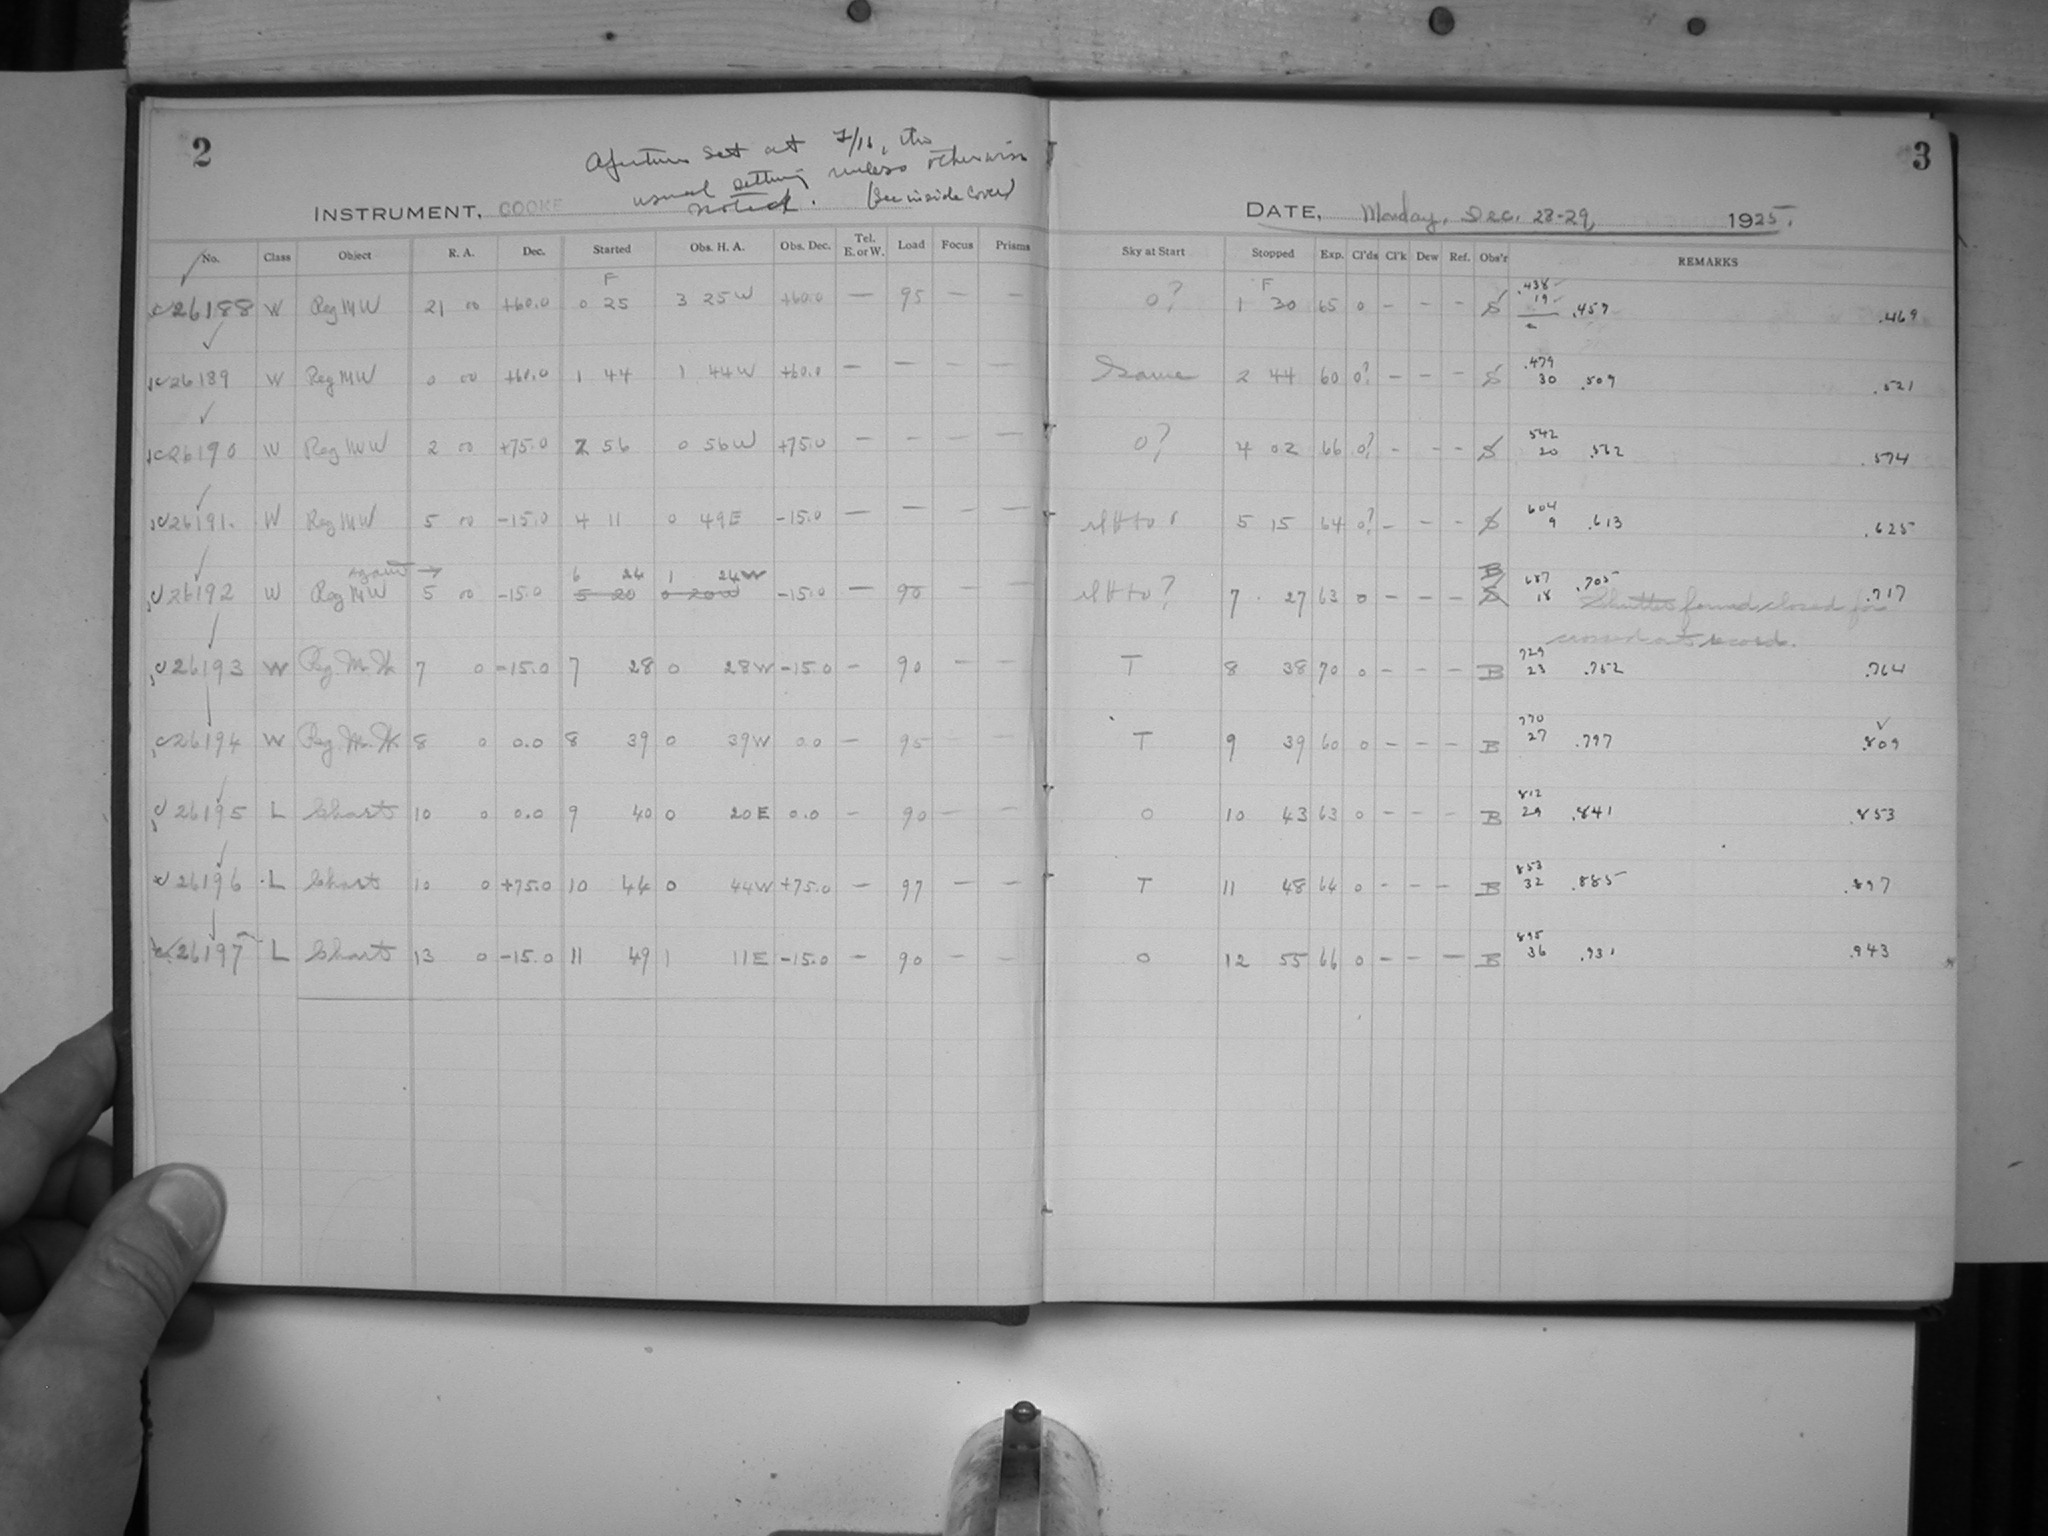 2
Aperture set at F/11, the
usual setting unless otherwise
noted. (see inside cover)
INSTRUMENT, COOKE
No. Class Object R. A. Dec. Started Obs. H. A. Obs. Dec. Tel. E. or W. Load Focus Prisms
F
26188 W Reg MW 21 00 +60.0 0 25 3 25W +60.0 — 95 — —
26189 W Reg MW 0 00 +60.0 1 44 1 44W +60.0 — — — —
26190 W Reg MW 2 00 +75.0 2 56 0 56W +75.0 — — — —
26191. W Reg MW 5 00 -15.0 4 11 0 49E -15.0 — — — —
Again → 6 24 1 24W
26192 W Reg MW 5 00 -15.0 5 20 0 20W -15.0 — 90 — —
26193 W Reg. M. W. 7 0 -15.0 7 28 0 28W -15.0 — 90 — —
26194 W Reg. M. W. 8 0 0.0 8 39 0 39W 0.0 — 95 — —
26195 L Chart 10 0 0.0 9 40 0 20E 0.0 — 90 — —
26196 L Chart 10 0 +75.0 10 44 0 44W +75.0 — 97 — —
26197 L Chart 13 0 -15.0 11 49 1 11E -15.0 — 90 — —
3
DATE, Monday, Dec. 28-29, 1925.
Sky at Start Stopped Exp. Cl'ds Cl'k Dew Ref. Obs'r REMARKS
F .438
0? 1 30 65 0 - - - S 19 .457 .469
.479
Same 2 44 60 0? - - - S 30 .509 .521
542
0? 4 02 66 0? - - - S 20 .562 .574
604
5 15 64 0? - - - S 9 .613 .625
B 687 .705
7 27 63 0 - - - S 18 .717
Shutter found closed for
crossed out record.
729
T 8 38 70 0 - - - B 23 .752 .764
770
T 9 39 60 0 - - - B 27 .797 .809
812
0 10 43 63 0 - - - B 29 .841 .853
853
T 11 48 64 0 - - - B 32 .885 .897
895
0 12 55 66 0 - - - B 36 .931 .943